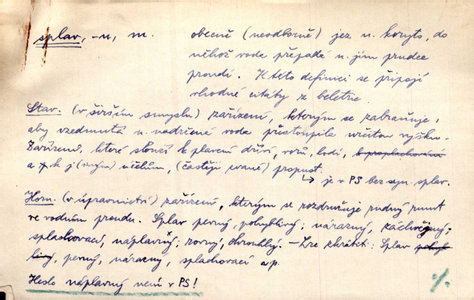 splav, -u, m.
obecně (neodborně) jez n. koryto, do
něhož voda přepadá n. jím prudce
proudí. K této definici se připojí
vhodné citáty z beletrie.
Stav. (v širším smyslu) zařízení, kterým se zabraňuje,
aby vzedmutá n. nadržená voda přestoupila určitou výšku.
Zařízení, které slouží k plavení dříví, vorů, lodí,
a p. k j(iným) účelům, (častěji zvané) propust.
↳ je v PS bez syn. splav.
Horn. (v úpravnictví) zařízení, kterým se rozdružuje rudný rmut
ve vodním proudu. Splav pevný, pohyblivý; nárazný,
splachovací, náplavný; rovný, okrouhlý. – Lze zkrátit: Splav pohyb-
livý, pevný, nárazný, splachovací a p.
Heslo náplavný není v PS!